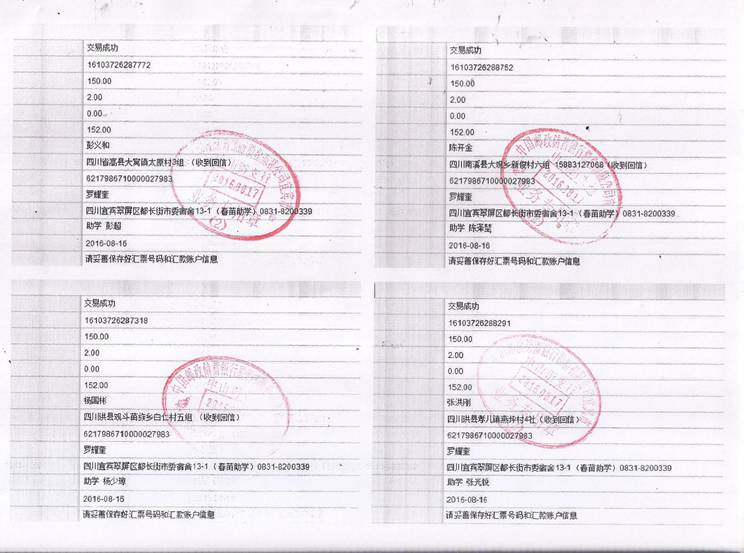 交易成功
16103726287772
150.00
2.00
0.00
152.00
彭义和
四川省高县大窝镇太原村3组 (收到回信)
6217986710000027983
罗耀奎
四川宜宾翠屏区都长街市委宿舍13-1 (春苗助学) 0831-8200339
助学 彭超
2016-08-16
请妥善保存好汇票号码和汇款账户信息
20160817
业务专用章
(2)
交易成功
16103726288752
150.00
2.00
0.00
152.00
陈开金
四川南溪县大观乡新俊村六组 15883127068(收到回信)
6217986710000027983
罗耀奎
四川宜宾翠屏区都长街市委宿舍13-1 (春苗助学) 0831-8200339
助学 陈泽楚
2016-08-16
请妥善保存好汇票号码和汇款账户信息
20160817
交易成功
16103726287318
150.00
2.00
0.00
152.00
杨国彬
四川珙县观斗苗族乡白仁村五组 (收到回信)
6217986710000027983
罗耀奎
四川宜宾翠屏区都长街市委宿舍13-1 (春苗助学) 0831-8200339
助学 杨少琼
2016-08-16
请妥善保存好汇票号码和汇款账户信息
中国邮政储蓄银行
交易成功
16103726288291
150.00
2.00
0.00
152.00
张洪刚
四川珙县孝儿镇燕坪村4社(收到回信)
6217986710000027983
罗耀奎
四川宜宾翠屏区都长街市委宿舍13-1 (春苗助学) 0831-8200339
助学 张元锐
2016-08-16
请妥善保存好汇票号码和汇款账户信息
20160817